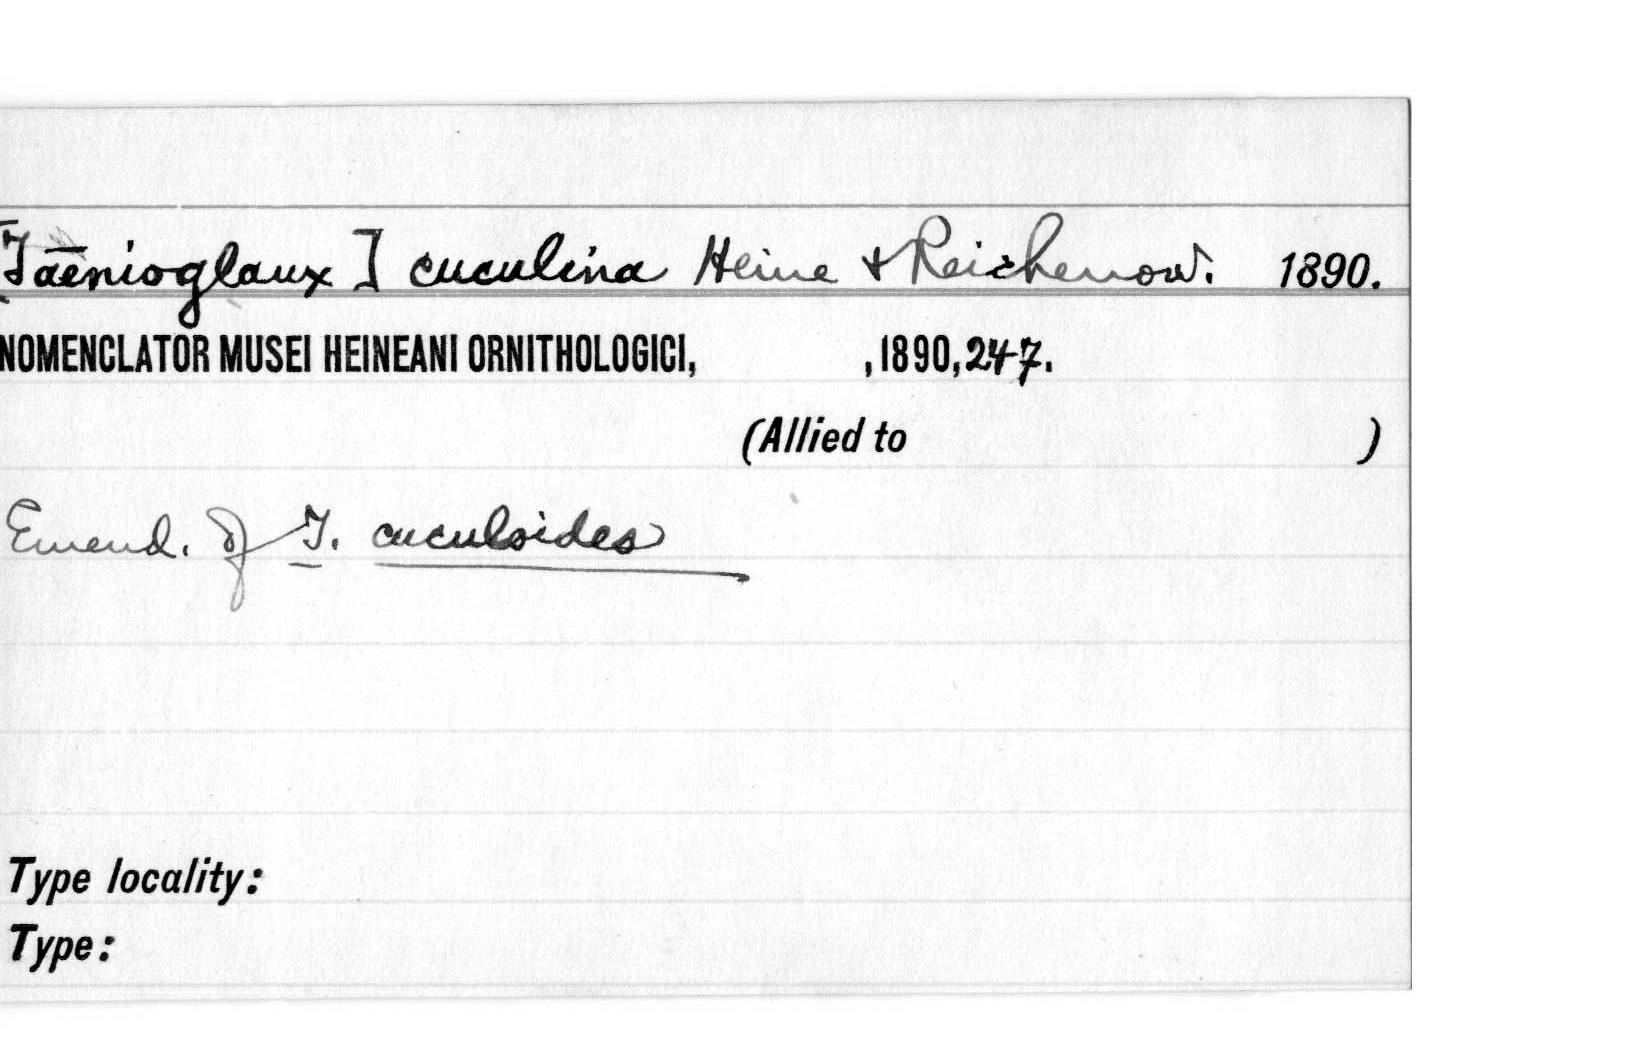 [Taenioglaux] cuculina Heine & Reichenow. 1890.
NOMENCLATOR MUSEI HEINEANI ORNITHOLOGICI, ,1890,247.
(Allied to )
Emend. of T. cuculoides
Type locality:
Type: